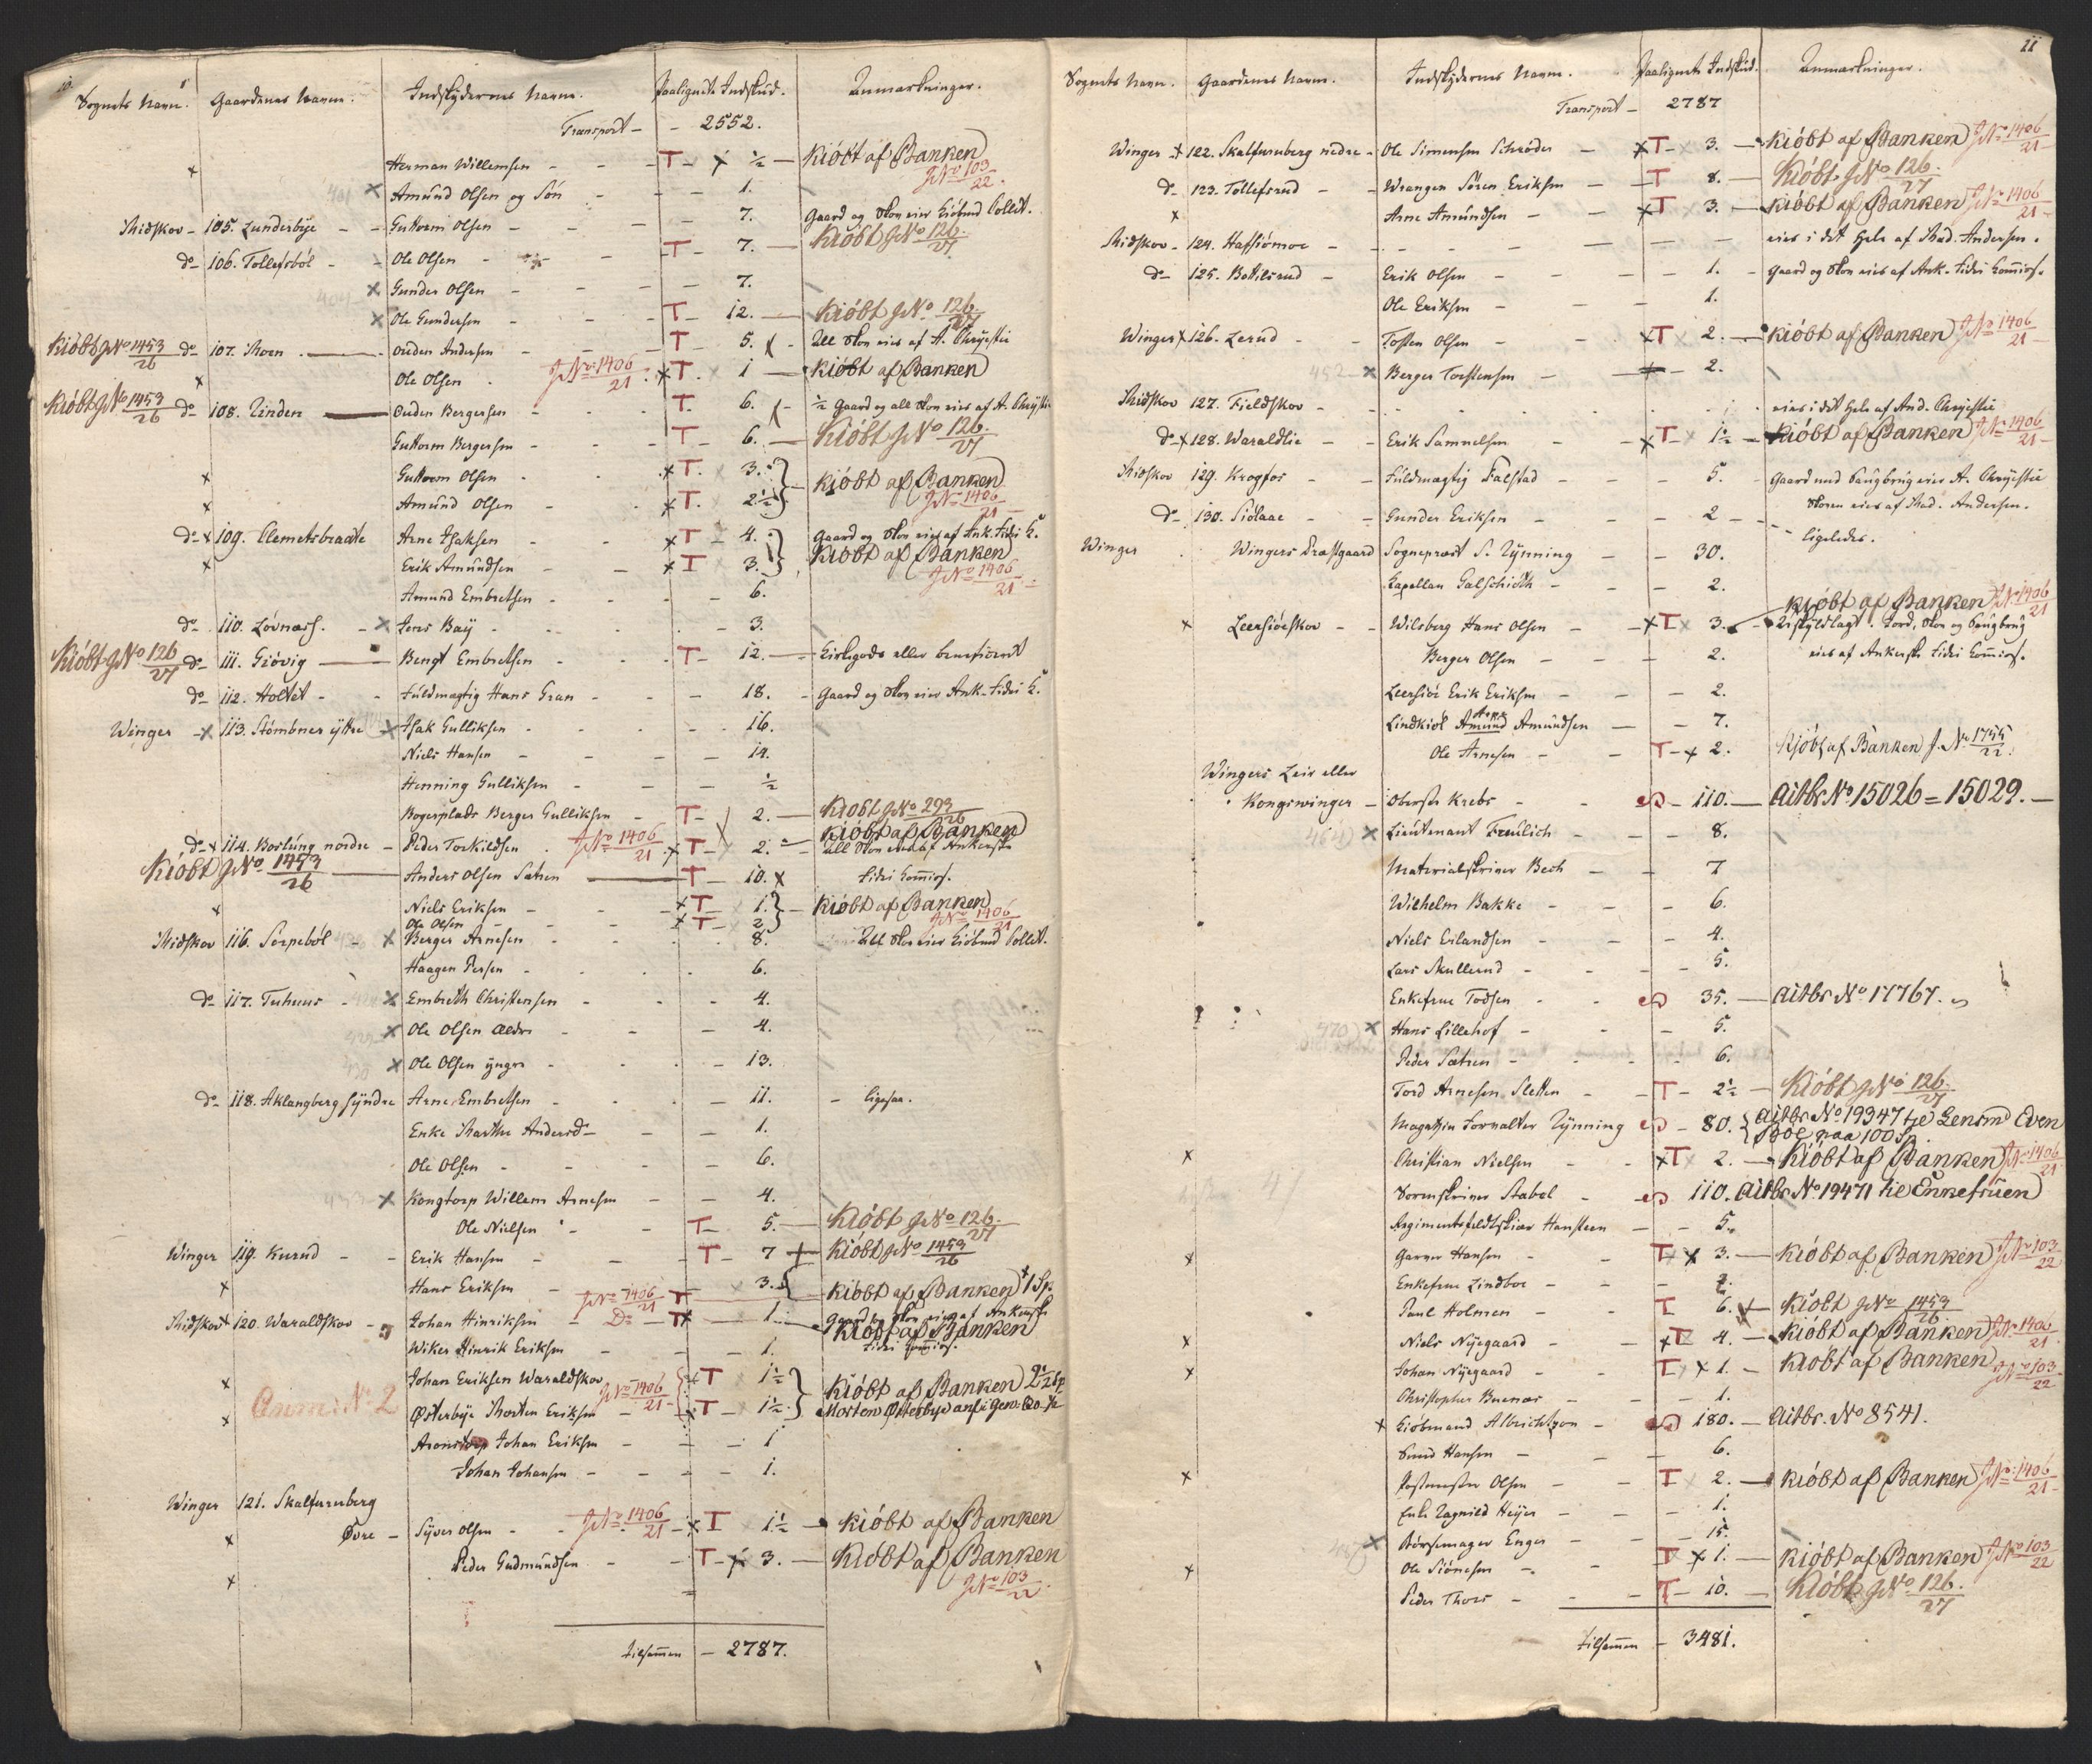 10.
Sognets Navn. Gaardenes Navne. Indskydernes Navne. Paalignede Indskud. Anmærkninger.
Transport - 2552.
Herman Willemsen - T - x ½ - Kiöbt af Banken JNo 103/22.
401 x Amund Olsen og Sön - 1.
Skidskov - 105. Lunderbye - Guttorm Olsen - 7. Gaard og Skov eier Kiöbmd Collet.
do - 106. Tollefsböl - Ole Olsen - T - 7. - Kiöbt JNo 126/27
404 x Gunder Olsen - 7.
x Ole Gundersen - T - 12. - Kiöbt JNo 126/27
Kiöbt JNo 1453/26 do 107. Moen - Ouden Andersen - T - 5. All Skov eies af A. Chrystie
x Ole Olsen JNo 1406/21 x T. 1 - Kiöbt af Banken
Kiöbt JNo 1453/26 do 108. Linden - Ouden Bergersen - T. 6. - ½ Gaard og all Skov eies af A. Chrystie
Guttorm Bergersen - T - 6. - Kiöbt JNo 126/27
x Guttorm Olsen - x T. 3. } Kiöbt af Banken
x Amund Olsen - x T. 2½ } JNo 1406/21
do x 109. Clemetsbraate Arne Isaksen - x T - 4. Gaard og Skov eies af Ank. Fidei C.
x Erik Amundsen - x T 3. } Kiöbt af Banken JNo 1406/21
Amund Embretsen - 6.
do - 110. Lövnæss. - x Jens Bay - 3.
Kiöbt JNo 126/27 do 111. Giövig - Bengt Embretsen - T - 12. - Kirkegods eller beneficeret
do 112. Holtet - Fuldmægtig Hans Gran - 18. - Gaard og Skov eier Ank. Fidei C.
Winger - x 113. Stömbner yttre x Isak Gulliksen - 16.
Niels Hansen - 14.
Henning Gulliksen - ½
Bogerplads Berger Gulliksen - T - 2. - Kiöbt JNo 293/26
do x 114. Borlung nordre - Peder Torkildsen . JNo 1406/21 x T - 2. - Kiöbt af Banken
All Skov eies af Ankerske
Kiöbt JNo 1453/26 - Anders Olsen Sætren - T - 10. x Fidei Commiss.
x Niels Eriksen - x T - 1. } - Kiöbt af Banken
Ole Olsen - x T - 2 } JNo 1406/21
Skidskov 116. Serpeböl - x Berger Arnesen - 8. All Skov eier Kiöbmd Collet.
Haagen Persen - 6.
do 117. Tuhuus - x Embreth Christensen - 4.
x Ole Olsen Ældre - 4.
x Ole Olsen yngre - 13.
do 118. Aklangberg syndre Arne Embretsen - 11. - ligesaa.
Enke Marthe Andersd. - 1.
Ole Olsen - 6.
x Kongtorp Willem Arnesen - 4.
Ole Nielsen - T - 5. - Kiöbt JNo 126/27
Winger 119. Kurud - Erik Hansen - T - 7 + Kiöbt JNo 1453/26
x Hans Eriksen - JNo 1406/21 T 3. { Kiöbt af Banken 1 Sp.
Skidskov x 120. Waraldskov - Johan Hinriksen - Do - T x 1. - Gaard og Skov eies af Ankerske
Kiöbt af Banken
Wiker Hinrik Eriksen - 1. Fidei Commiss.
x Johan Eriksen Waraldskov JNo 1406/21 x T 1½ } Kiöbt af Banken 2½ Sp
Anm: No 2
x Østerbye Morten Eriksen - x T - 1½ } Morten Østerbye
Aronstorp Johan Eriksen - 1
Johan Johansen - 1.
Winger 121. Skalfurnberg
x Øvre - Syver Olsen - JNo 1406/21 x T 1½ - Kiöbt af Banken
x Peder Gudmundsen - T - x 3. - Kiöbt af Banken JNo 103/22
Tilsammen - 2787.
11
Sognets Navn. Gaardenes Navne. Indskydernes Navne. Paalignede Indskud. Anmærkninger.
Transport - 2787
Winger x 122. Skalfurnberg nedre - Ole Simensen Schröder - x T - 3. - Kiöbt af Banken JNo 1406/21
do 123. Tollefsrud - Wrangen Sören Eriksen - T 8. - Kiöbt JNo 126/27
x Arne Amundsen - x T 3. - Kiöbt af Banken JNo 1406/21
Skidskov - 124. Hafsiömoe - eies i det Hele af Mad. Andersen.
do - 125. Bottilsrud - Erik Olsen - 1. - Gaard og Skov eies af Ank. Fidei Commiss.
Ole Eriksen - 1.
Winger x 126. Lerud - Tosten Olsen - x T 2. - Kiöbt af Banken JNo 1406/21
452 x Berger Torstensen - 2.
Skidskov 127. Fieldskov - eies i det Hele af And. Chrystie
do x 128. Waraldlie - Erik Samuelsen - x T 1½ - Kiöbt af Banken JNo 1406/21
Skidskov 129. Krogfos - Fuldmægtig Falstad - 5. - Gaard med Saugbrug eier A. Chrystie
Skoven eies af Mad. Andersen.
do 130. Siölaae - Gunder Eriksen - 2 - ligeledes.
Winger Wingers Præstgaard Sognepræst S. Rynning - 30.
Kapellan Galschiöth - 2.
Kiöbt af Banken JNo 1406/21
x Leersiöeskov - Wilsberg Hans Olsen - x T x 3. - Uskyldlagt. Jord, Skov og Saugbrug
Berger Olsen - 2. eies af Ankerske Fidei Commiss.
Leersiöe Erik Eriksen - 2.
Arne
Lindkiöl Amund Amundsen - 7.
Ole Arnesen - T - x 2. Kjöbt af Banken J. No 1755/22.
Wingers Leir eller
Kongswinger - Oberste Krebs - 110. - Aitbr No 15026 = 15029. -
464 x Lieutenant Freulich - 8.
Materialskriver Bech - 7
Wilhelm Bakke - 6.
Niels Erlandsen - 4.
Lars Skullerud - 5.
Enkefrue Todsen - 35. - Aitbr No 17767.
470 x Hans Lillehof - 5.
Peder Sætren - 6.
Tord Arnesen Sletten - T - 2½ - Kiöbt JNo 126/27
Magazin Forvalter Rynning - 80. { Aitbr No 19347 til Lensmd Even
Böe paa 100 Sp.
x Christian Nielsen - x T 2. - Kiöbt af Banken JNo 1406/21
Sorenskriver Stabel - 110. Aitbr No 19471 til Enkefruen
Regimentsfeldtskiær Hansteen - 5.
x Garver Hansen - T x 3. - Kiöbt af Banken JNo 103/22
Enkefrue Lindboe - 2.
Paul Holmen - T 6. x - Kiöbt JNo 1453/26
x Niels Nyegaard - x T 4. - Kiöbt af Banken JNo 1406/21
x Johan Nyegaard - T x 1. - Kiöbt af Banken JNo 103/22
Christopher Buenæs - 1.
x Kiöbmand Albrichtzon - 180. - Aitbr. No 8541.
Svend Hansen - 6.
x Postmester Olsen - T 2. - Kiöbt af Banken JNo 1406/21
Enke Ragnild Heyer - 1.
x Börsemager Enger - 15.
x Ole Siönesen - T x 1. - Kiöbt af Banken JNo 103/22
Peder Thoes - T - 10. - Kiöbt JNo 126/27
Tilsammen - 3481.